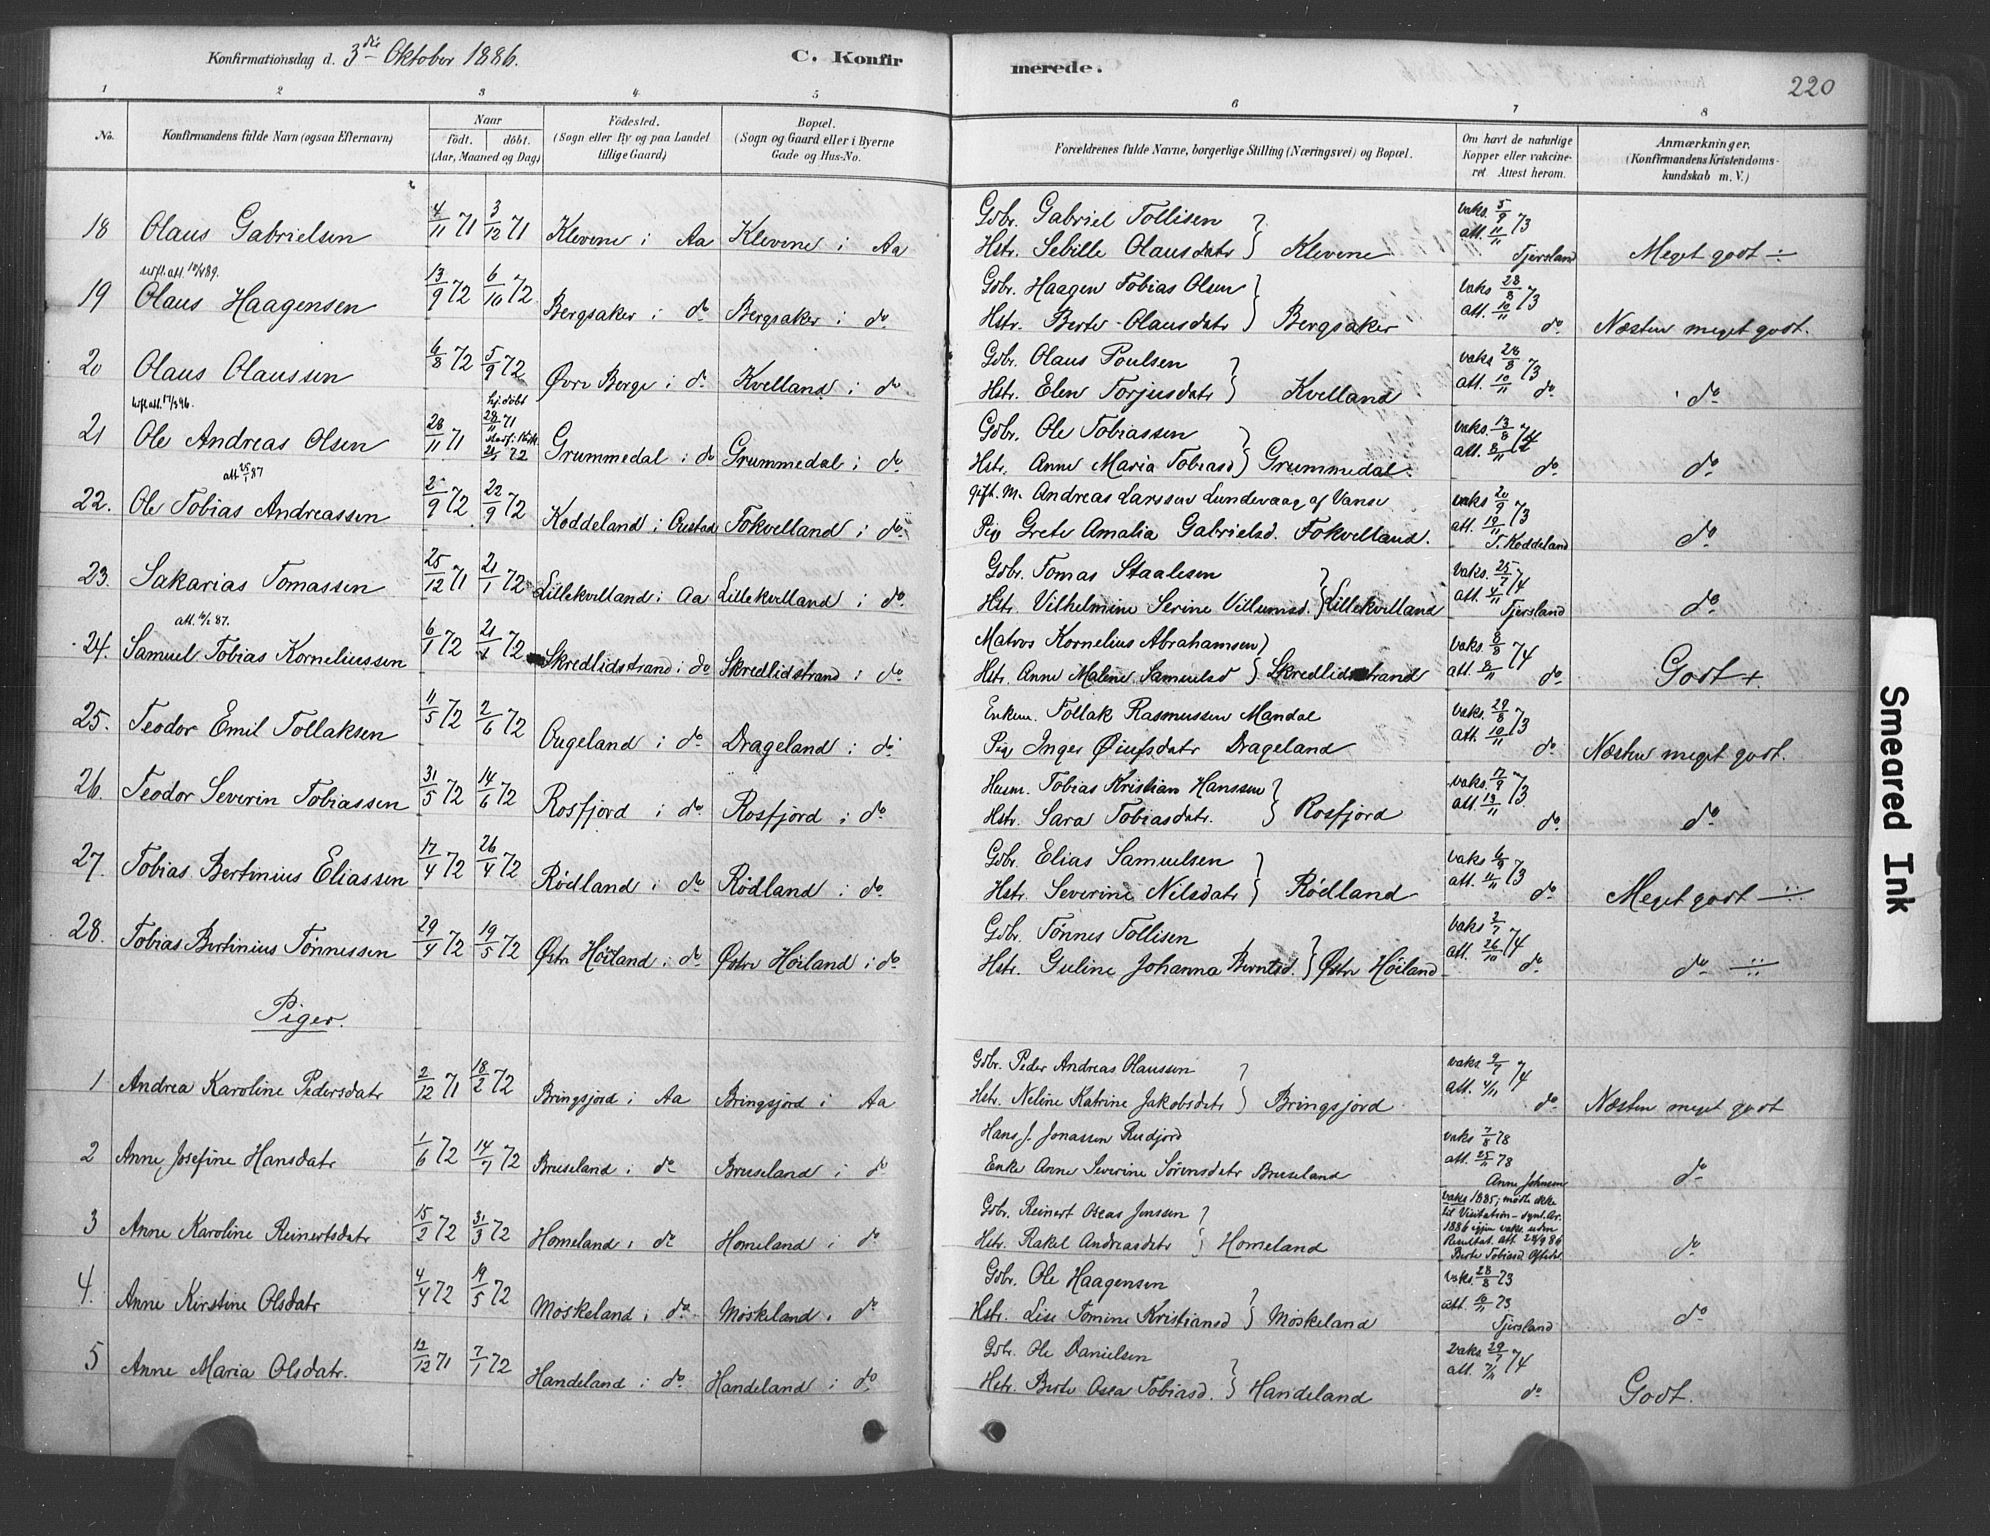 Konfirmationsdag d. 3die Oktober 1886. C. Konfirmerede. 220
1 2 3 4 5 6 7 8
No. Konfirmandens fulde Navn (ogsaa Efternavn) Naar födt. döbt. (Aar, Maaned og Dag) Födested. (Sogn eller By og paa Landet tillige Gaard) Bopæl. (Sogn og Gaard eller i Byerne Gade og Hus-No. Forældrenes fulde Navne, borgerlige Stilling (Næringsvei) og Bopæl. Om havt de naturlige Kopper eller vakcineret Attest herom. Anmærkninger. (Konfirmandens Kristendomskundskab m. V.)
18 Olaus Gabrielsen 4/11 71 3/12 71 Klevene i Aa Klevene i Aa Gdbr. Gabriel Tollisen
Hstr. Sebille Olausdatr } Klevene vaks. 5/9 att. 11/11 73 Tjersland Meget godt ÷
19 Olaus Haagensen 13/9 72 6/10 72 Bergsaker i do Bergsaker i do Gdbr. Haagen Tobias Olsen
Hstr. Berte Olausdatr } Bergsaker vaks 28/8 att. 10/11 73 do Næsten meget godt.
20 Olaus Olaussen 6/8 72 5/9 72 Øvre Berge i do Kvelland i do Gdbr. Olaus Poulsen
Hstr. Elen Torjusdatr } Kvelland vaks 28/8 att. 10/11 73 do do
21 Ole Andreas Olsen 28/11 71 hj. döbt 28/11 71 Grummedal i do Grummedal i do Gdbr. Ole Tobiassen
Hstr. Anne Maria Tobiasd } Grummedal. vaks. 13/8 att. 8/11 74 do do
att 25/1 87
22. Ole Tobias Andreassen 2/9 72 22/9 72 Koddeland i Oustad Fokvelland i do gift. M. Andreas Larssen Lundevaag af Vanse
Pig Grete Amalia Gabrielsd. Fokvelland. vaks 20/9 att. 19/11 73 T. Koddeland do
23. Sakarias Tomassen 25/12 71 21/1 72 Lillekvelland i Aa Lillekvelland i do Gdbr. Tomas Staalesen
Hstr. Vilhelmine Serine Villumsd. } Lillekvelland vaks. 25/7 att. 4/11 74 Tjersland do
24. Samuel Tobias Korneliussen 6/1 72 21/1 72 Skredlidstrand i do Skredlidstrand i do Matros Kornelius Abrahamsen
Hstr. Anne Malene Samuelsd } Skredlidstrand vaks. 8/8 att. 8/11 74 do Godt +
25. Teodor Emil Tollaksen 11/5 72 2/6 72 Ougeland i do Drageland i do Enkem. Tollak Rasmussen Mandal
Pig Inger Øiufsdatr Drageland vaks. 29/8 att. 10/11 73 do Næsten meget godt.
26. Teodor Severin Tobiassen 31/5 72 14/6 72 Rosfjord i do Rosfjord i do Husm. Tobias Kristian Hanssen
Hstr. Sara Tobiasdatr. } Rosfjord vaks. 17/9 att. 13/11 73 do do
27. Tobias Bertinius Eliassen 17/4 72 26/4 72 Rödland i do Rödland i do Gdbr. Elias Samuelsen
Hstr. Severine Nilsdatr } Rödland vaks 6/9 att. 11/11 73 do Meget godt
28. Tobias Bertinius Tönnessen 29/4 72 19/5 72 Østre Höiland i do Østre Höiland i do Gdbr. Tönnes Tollisen
Hstr. Guline Johanna Berntsd. } Østre Höiland vaks 2/7 att. 26/10 74 do do
Piger.
1 Andrea Karoline Pedersdatr 2/12 71 18/2 72 Bringsjord i Aa Bringsjord i Aa Gdbr. Peder Andreas Olaussen
Hstr. Neline Katrine Jakobsdatr } Bringsjord vaks 9/7 att. 4/11 74 do Næsten meget godt
2 Anne Josefine Hansdatr 1/6 72 14/7 72 Bruseland i do Bruseland i do Hans J. Jonassen Rudjord
Enke Anne Severine Sörensdatr Bruseland vaks 7/8 78 att. 25/11 78 Anne Johnsen do
3 Anne Karoline Reinertsdatr 15/2 72 31/3 72 Homeland i do Homeland i do Gdbr. Reinert Oseas Jenssen
Hstr. Rakel Andreasdatr } Homeland vaks 1885; mödte ikke til Visitation – 1886 igjen vaks. uden Resultat. att 28/9 86 Berte Tobiasd do
4. Anne Kirstine Olsdatr 4/4 72 19/5 72 Möskeland i do Möskeland i do Gdbr. Ole Haagensen
Hstr. Lise Tomine Kristiansd } Möskeland vaks. 28/8 73 att 10/11 73 Tjersland do
5 Anne Maria Olsdatr. 12/12 71 7/1 72 Handeland i do Handeland i do Gdbr. Ole Danielsen
Hstr. Berte Osea Tobiasd. } Handeland vaks 29/7 att. 7/11 74 do Godt.
Smeared Ink